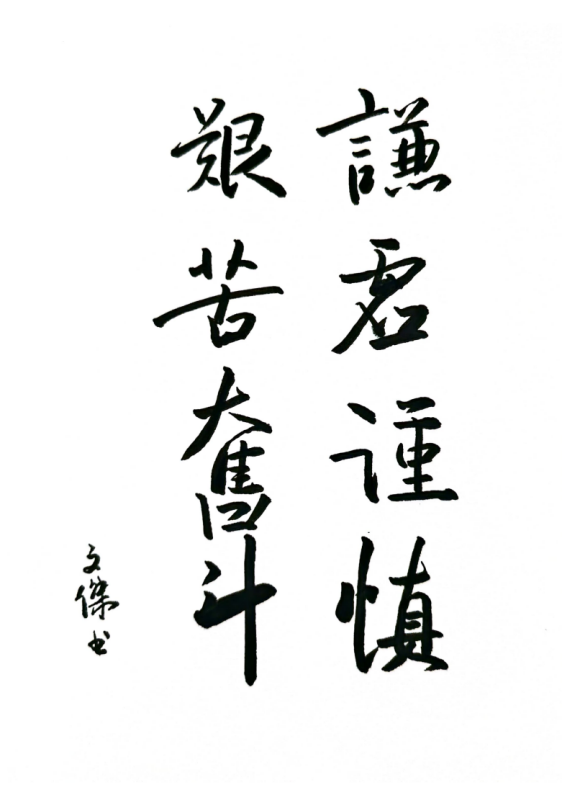 謙虚谨慎
艰苦奮斗
文傑书